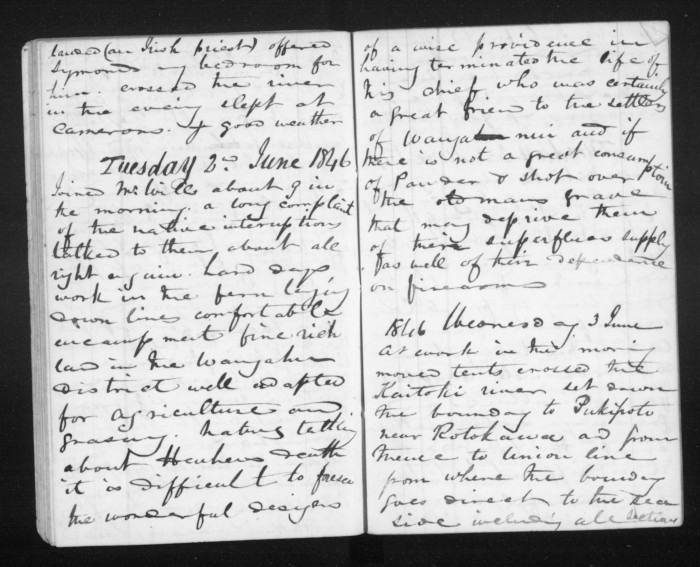 landed (an Irish priest) offered
Symonds my bedroom for
him. crossed the river
in the eveing slept at
Camerons. good weather
Tuesday 2nd June 1846
Joined Mr Wills about 9 in
the morning. a long complaint
of the native interuptions
talked to them about all
right again. hard days
work in the fern laying
down lines comfortable
encampment fine rich
land in the Wangahu
district well adapted
for agriculture and
grasing. Natives talking
about Heuheus death
it is difficult to foresee
the wonderful designs
of a wise providence in
having terminated the life of
his chief who was certainly
a great frien to the settlers
of Wanganui and if
there is not a great consumption
of Pauder & shot over
the old mans grave
that may deprive them
of their superflues supply
as well of their dependance
on firearms
1846 Wednesday 3 June
at work in the morning
moved tents crossed the
Kaitoki river set down
the bounday to Pukipoto
near Rotokawa ad from
thence to Union line
from where the bounday
goes direct to the sea
side including all sections